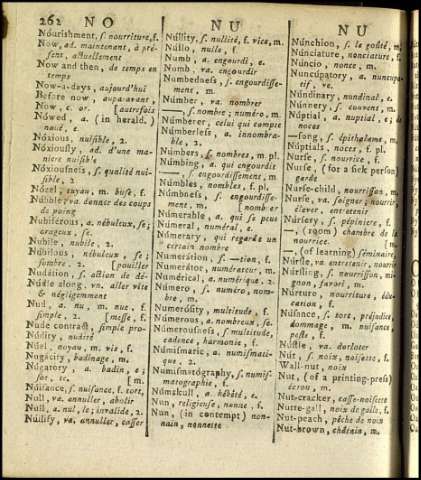 262 NO NU NU
Nourishment, ſ. nourriture, f.
Now, ad. maintenant, à pré-
ſent, actuellement
Now and then, de temps en
temps
Now-a-days, aujourd'hui
Before now, auparavant
Now, c. or [autrefois
Nowed, a. (in herald.)
noué, e
Nóxious, nuiſible, 2
Nóxiouſly, ad. d'une ma-
niere nuiſible
Nóxiouſneſs, ſ. qualité nui-
ſible, 2
Nózel, tuyau, m. buſe, f.
Núbile, va. donner des coups
de poing
Nubíferous, a. nébuleux, ſe;
orageux, ſe.
Nubile, nubile, 2
Nubilous, nébuleux, ſe;
ſombre, 2. [pouiller
Nudátion, ſ. action de dé-
Núdle along, vn. aller vite
& négligemment
Nud, a. nu, m. nue, f.
ſimple, 2. [meſſe, f.
Nude contract, ſimple pro-
Núdity, nudité
Nuel, noyau, m. vis, f.
Nugácity, badinage, m.
Núgatory, a. badin, e;
ſot, te. [m.
Nuiſance, ſ. nuiſance, f. tort,
Null, va. annuller, abolir
Null, a. nul, le; invalide, 2
Núllify, va. annuller, caſſer
Núllity, ſ. nullité, f. vice, m.
Nullo, nulle, f.
Numb, a. engourdi, e.
Numb, va. engourdir
Numbedneſs, ſ. engourdiſſe-
ment, m.
Númber, va. nombrer
—, ſ. nombre, numéro, m.
Númberer, celui qui compte
Númberleſs, a. innombra-
ble, 2.
Númbers, ſ. nombres, m. pl.
Númbing, a. qui engourdit
—, ſ. engourdiſſement, m.
Númbles, nombles, f. pl.
Númbneſs, ſ. engourdiſſe-
ment, m. [nombrer
Númerable, a. qui ſe peut
Númeral, numéral, e.
Númerary, qui regarde un
certain nombre
Numerátion, ſ. —tion, f.
Numerátor, numérateur, m.
Numérical, a. numérique, 2.
Número, ſ. numéro, nom-
bre, m.
Numeroſity, multitude, f.
Númerous, a. nombreux, ſe.
Númerouſneſs, ſ. multitude,
cadence, harmonie, f.
Numiſmatic, a. numiſmati-
que, 2.
Numiſmatógraphy, ſ. numiſ-
matographie, f.
Númskull, a. hébêté, e.
Nun, religieuſe, nonne, f.
Nun, (in contempt) non-
nain, nonnette
Núnchion, ſ. le goûté, m.
Núnciature, nonciature, f.
Núncio, nonce, m.
Nuncúpatory, a. nuncupa-
tif, ve.
Núndinary, nundinal, e.
Núnnery, ſ. couvent, m.
Núptial, a. nuptial, e; de
noces
—ſong, ſ. épithalame, m.
Núptials, noces, f. pl.
Nurſe, ſ. nourrice, f.
Nurſe, (for a ſick perſon)
garde
Nurſe-child, nourriſſon, m.
Nurſe, va. ſoigner, nourrir,
élever, entretenir
Núrſery, ſ. pépiniere, f.
—, (room) chambre de la
nourrice. [m.
—, (of learning) ſéminaire,
Núrſle, va. entretenir, nourrir
Núrſling, ſ. nourriſſon, mi-
gnon, favori, m.
Núrture, nourriture, édu-
cation, f.
Núſance, ſ. tort, préjudice,
dommage, m. nuiſance,
peſte, f.
Núſtle, va. dorloter
Nut, ſ. noix, noiſette, f.
Wall-nut, noix
Nut, (of a printing-preſs)
écrou, m.
Nut-cracker, caſſe-noiſette
Nutte-gall, noix de galle, f.
Nut-peach, pêche de noix
Nut-brown, châtain, m.